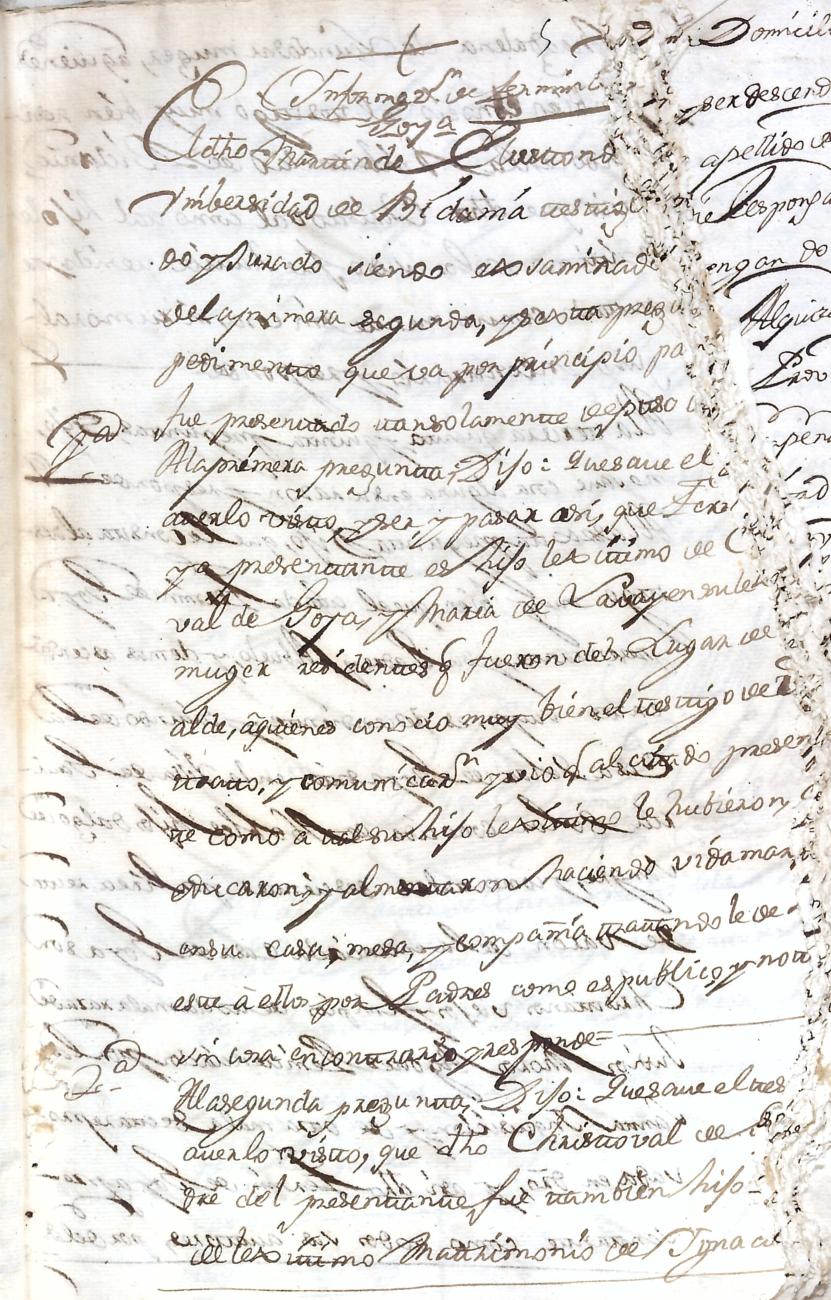 5
Informaz.n de Fermin de
Goya
El dho Martin de Elustond
Vnibersidad de Bidania testig
do y Jurado siendo exsaminado
dela primera segunda, y sexta preg
pedimento que va por principio pa
fue presentado tansolamente depuso
1.a
Ala primera pregunta, Dijo: que saue el
auerlo visto, y ser, y pasar asi, que Fer
ya presentante es hijo lexitimo de C
val de Goya, y Maria de
muger residentes q fueron del Lugar de
alde, aquienes conocio muy bien el testigo de
trato, y comunicaz.n y vio q al citado presen
te como a tal su hijo lexitimo le hubieron,
educaron, y alimentaron haciendo vida mar
ensu casa, mesa, y compañia tratandole de
este a ellos por Padres como es publico, y noto
sin cosa encontrario y responde=
2.a
Ala segunda pregunta, Dijo: Que saue el tes
auerlo visto, que dho Christoval de
dre del presentante, fue tambien hijo
de lexitimo Matrimonio de Ygnacio
Domicili
y ser descend
apellido de
Responga
tengan do
Alguiz
Prov